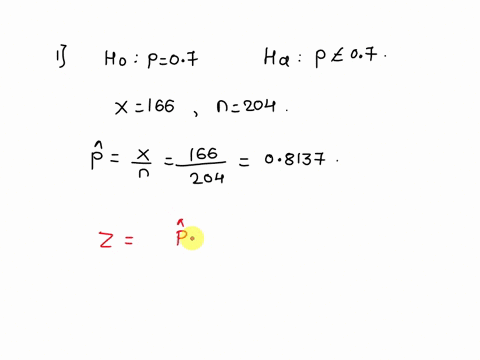 1] Ho : p=0.7 Ha : p≠0.7.
x=166 , n=204.
p̂ = x/n = 166/204 = 0.8137.
Z = p̂